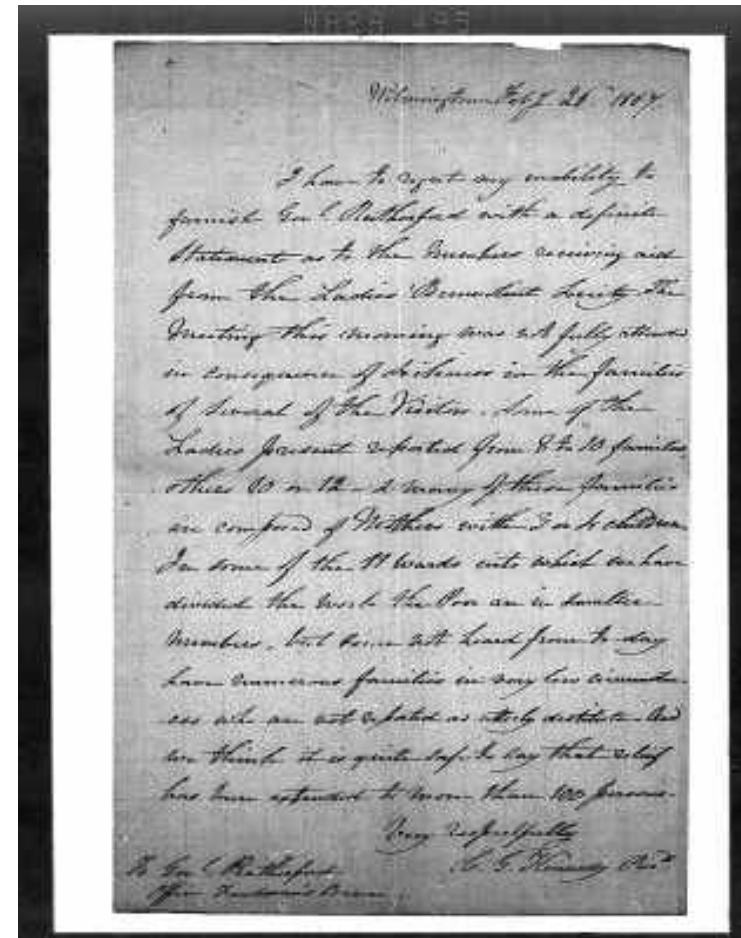 Wilmington Feby 26th 1867.
I have to regret my inability to
furnish Genl Rutherford with a definite
Statement as to the numbers receiving aid
from the Ladies Benevolent Society. The
Meeting this morning was not fully attended
in consequence of sickness in the families
of several of the Visitors. Some of the
Ladies present reported from 8 to 10 families
others 10 or 12 - & many of these families
are composed of Mothers with 3 or 4 children
In some of the 11 wards into which we have
divided the work the Poor are in smaller
numbers, but some not heard from to-day
have numerous families in very low circumstan
ces who are not reported as utterly destitute. And
we think it is quite safe to say that relief
has been extended to more than 100 persons.
Very respectfully
To Genl Rutherford